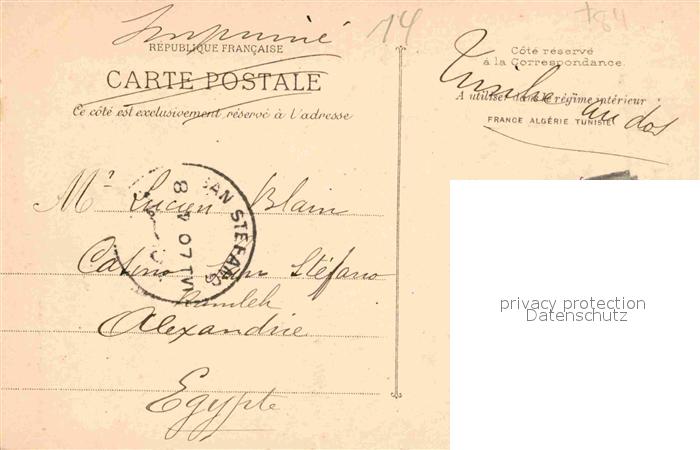 Imprimé
14
RÉPUBLIQUE FRANÇAISE
CARTE POSTALE
Ce côté est exclusivement réservé à l'adresse
+84
Côté réservé
à la Correspondance
A utiliser dans le régime intérieur
FRANCE ALGÉRIE TUNISIE
Timbre au dos
Mr Lucien Blain
Casino San Stéfano
Ramleh
Alexandrie
Egypte
SAN STEFANO
07
privacy protection
Datenschutz